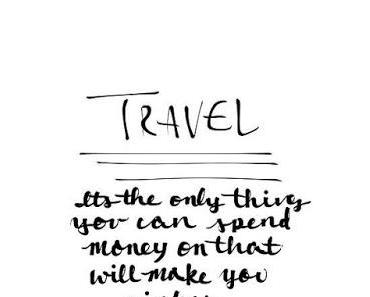 TRAVEL
Its the only thing
you can spend
money on that
will make you